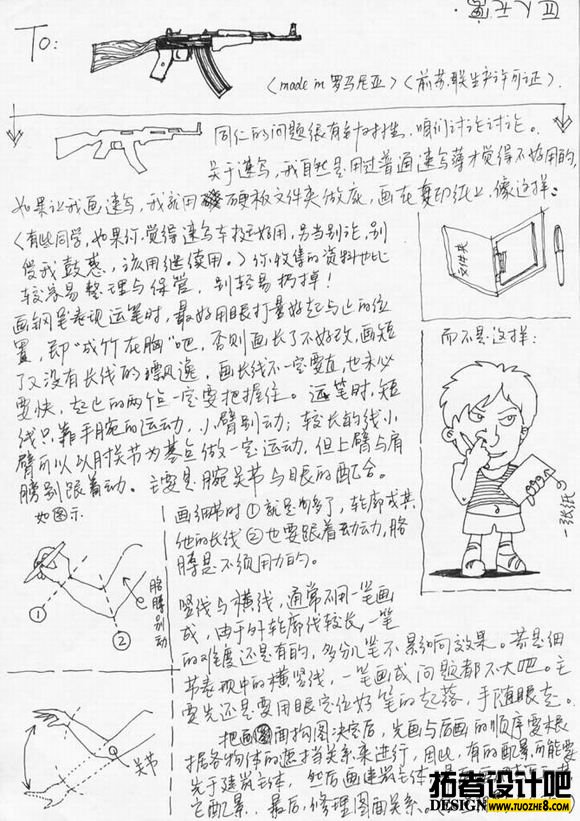 To:
(made in 罗马尼亚)(前苏联生产许可证).
同仁的问题很有针对性, 咱们讨论讨论。
关于速写, 我自然是用过普通速写薄才觉得不好用的,
如果让我画速写, 我就用硬板文件夹做底, 画在复印纸上. 像这样:
(有些同学, 如果你觉得速写本挺好用, 另当别论, 别
受我鼓惑, 该用继续用。) 你收集的资料也比
较容易整理与保管, 别轻易扔掉!
文件夹
画钢笔表现运笔时, 最好用眼打量好起与止的位
置, 即“成竹在胸”吧, 否则画长了不好改, 画短
了又没有长线的飘逸, 画长线不一定要直, 也未必
要快, 起止的两个点一定要把握住。运笔时, 短
线只靠手腕的运动, 小臂别动; 较长的线小
臂可以以肘关节为基点做一定运动, 但上臂与肩
膀别跟着动。主要是腕关节与眼的配合。
如图示
而不是这样:
一张纸
画细节时①就足够了, 轮廓或其
他的长线②也要跟着动, 胳
膊是不须用力的。
①
②
胳膊别动
竖线与横线, 通常不用一笔画
成, 由于外轮廓线较长, 一笔
的难度还是有的, 多分几笔不影响效果。若是细
节表现中的横竖线, 一笔画成问题都不大吧。主
要先还是要用眼定位好笔的起落, 手随眼走。
关节
把画面构图决定后, 先画与后画的顺序要根
据各物体的遮挡关系来进行, 因此, 有的配景可能要
先于建筑主体, 然后画建筑主体,
它配景, 最后, 修理图面关系。
拓者设计吧
DESIGN WWW.TUOZHE8.COM